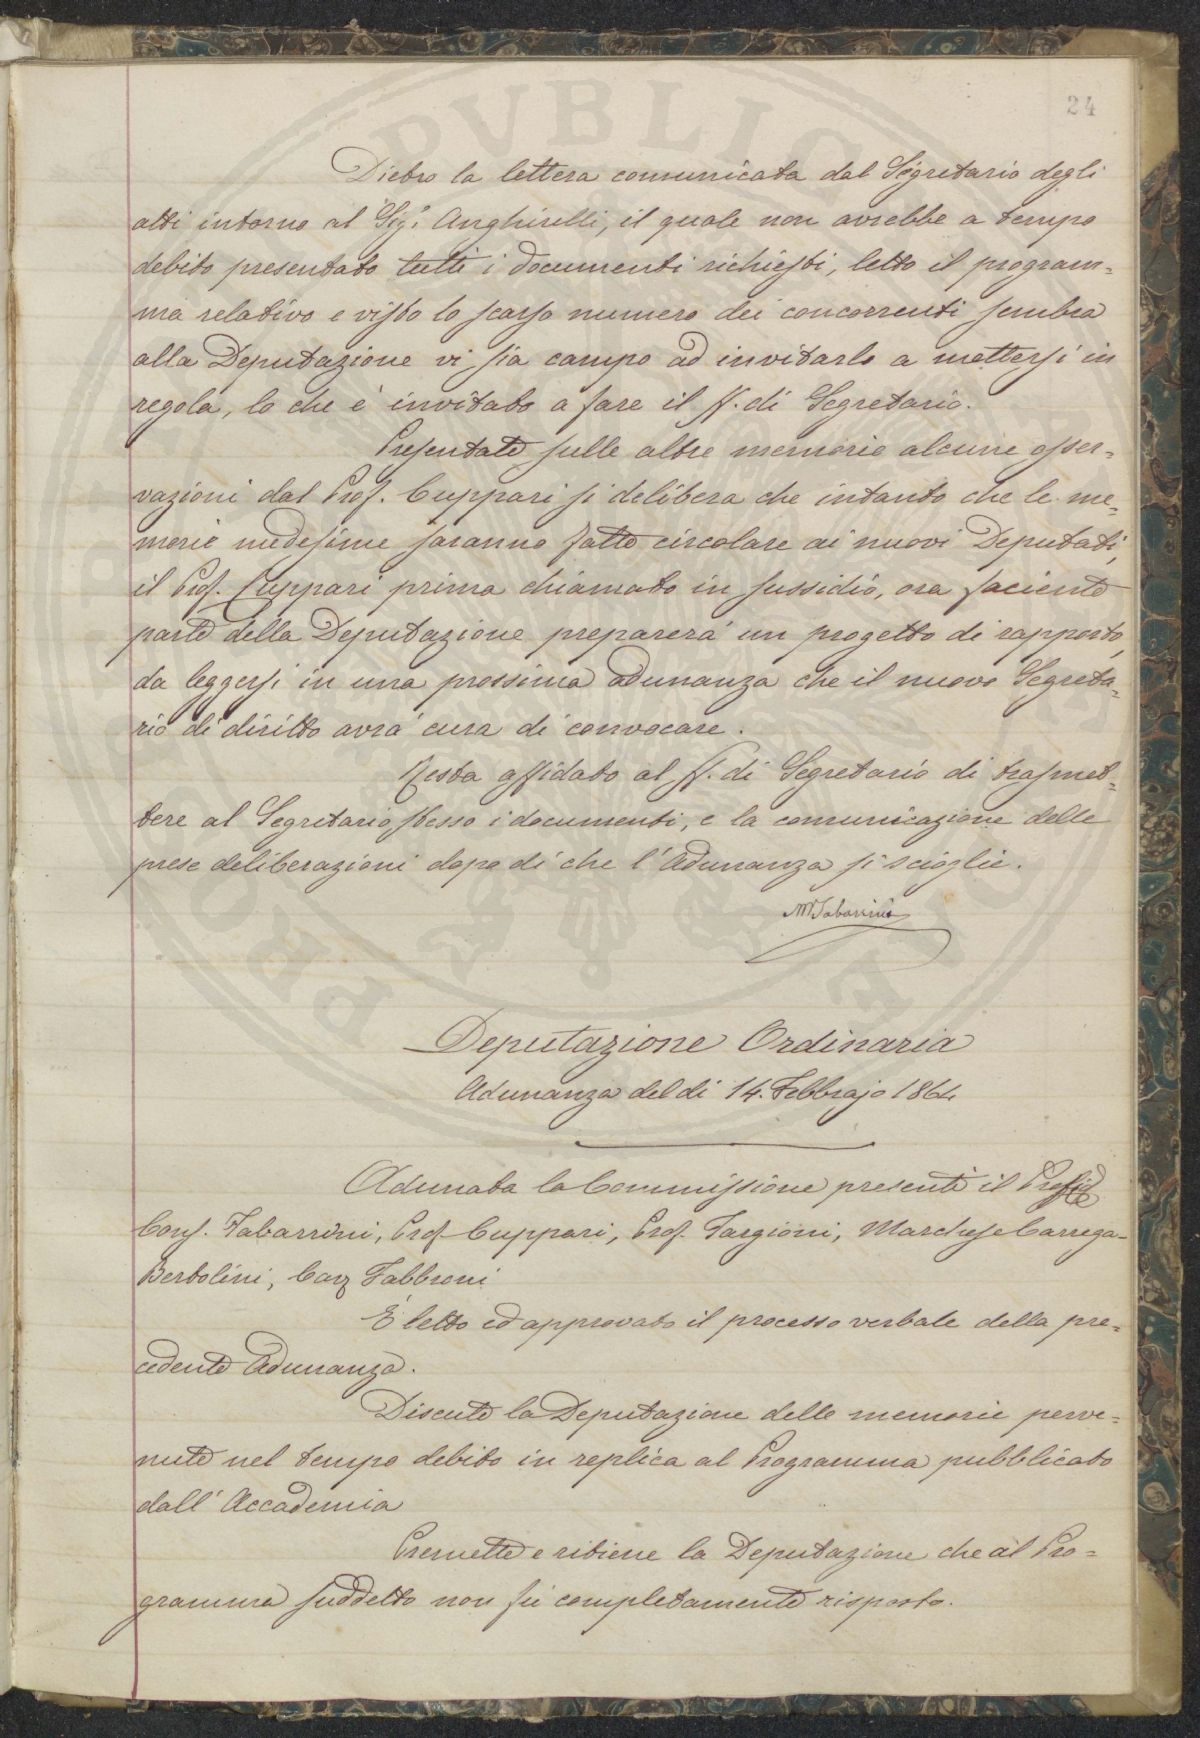 24
Dietro la lettera comunicata dal Segretario degli
atti intorno al Sig.r Anghirelli, il quale non avrebbe a tempo
debito presentato tutti i documenti richiesti, letto il program=
ma relativo e visto lo scarso numero dei concorrenti sembra
alla Deputazione vi sia campo ad invitarlo a mettersi in
regola, lo che è invitato a fare il ff. di Segretario.
Presentate sulle altre memorie alcune osser=
vazioni dal Prof. Cuppari si delibera che intanto che le me=
morie medesime saranno fatte circolare ai nuovi Deputati,
il Prof. Cuppari prima chiamato in sussidio, ora faciente
parte della Deputazione preparerà un progetto di rapporto,
da leggersi in una prossima adunanza che il nuovo Segreta=
rio di diritto avrà cura di convocare.
Resta affidato al ff. di Segretario di trasmet=
tere al Segretario stesso i documenti, e la comunicazione delle
prese deliberazioni dopo di che l'Adunanza si scioglie.
M Tabarrini
Deputazione Ordinaria
Adunanza del dì 14. Febbrajo 1864
Adunata la Commissione presenti il
Cons. Tabarrini, Prof Cuppari, Prof. Targioni, Marchese Carrega-
Bertolini, Cav Fabbroni
È letto ed approvato il processo verbale della pre=
cedente Adunanza.
Discute la Deputazione delle memorie perve=
nute nel tempo debito in replica al Programma pubblicato
dall'Accademia
Premette e ritiene la Deputazione che al Pro=
gramma suddetto non fu completamente risposto.